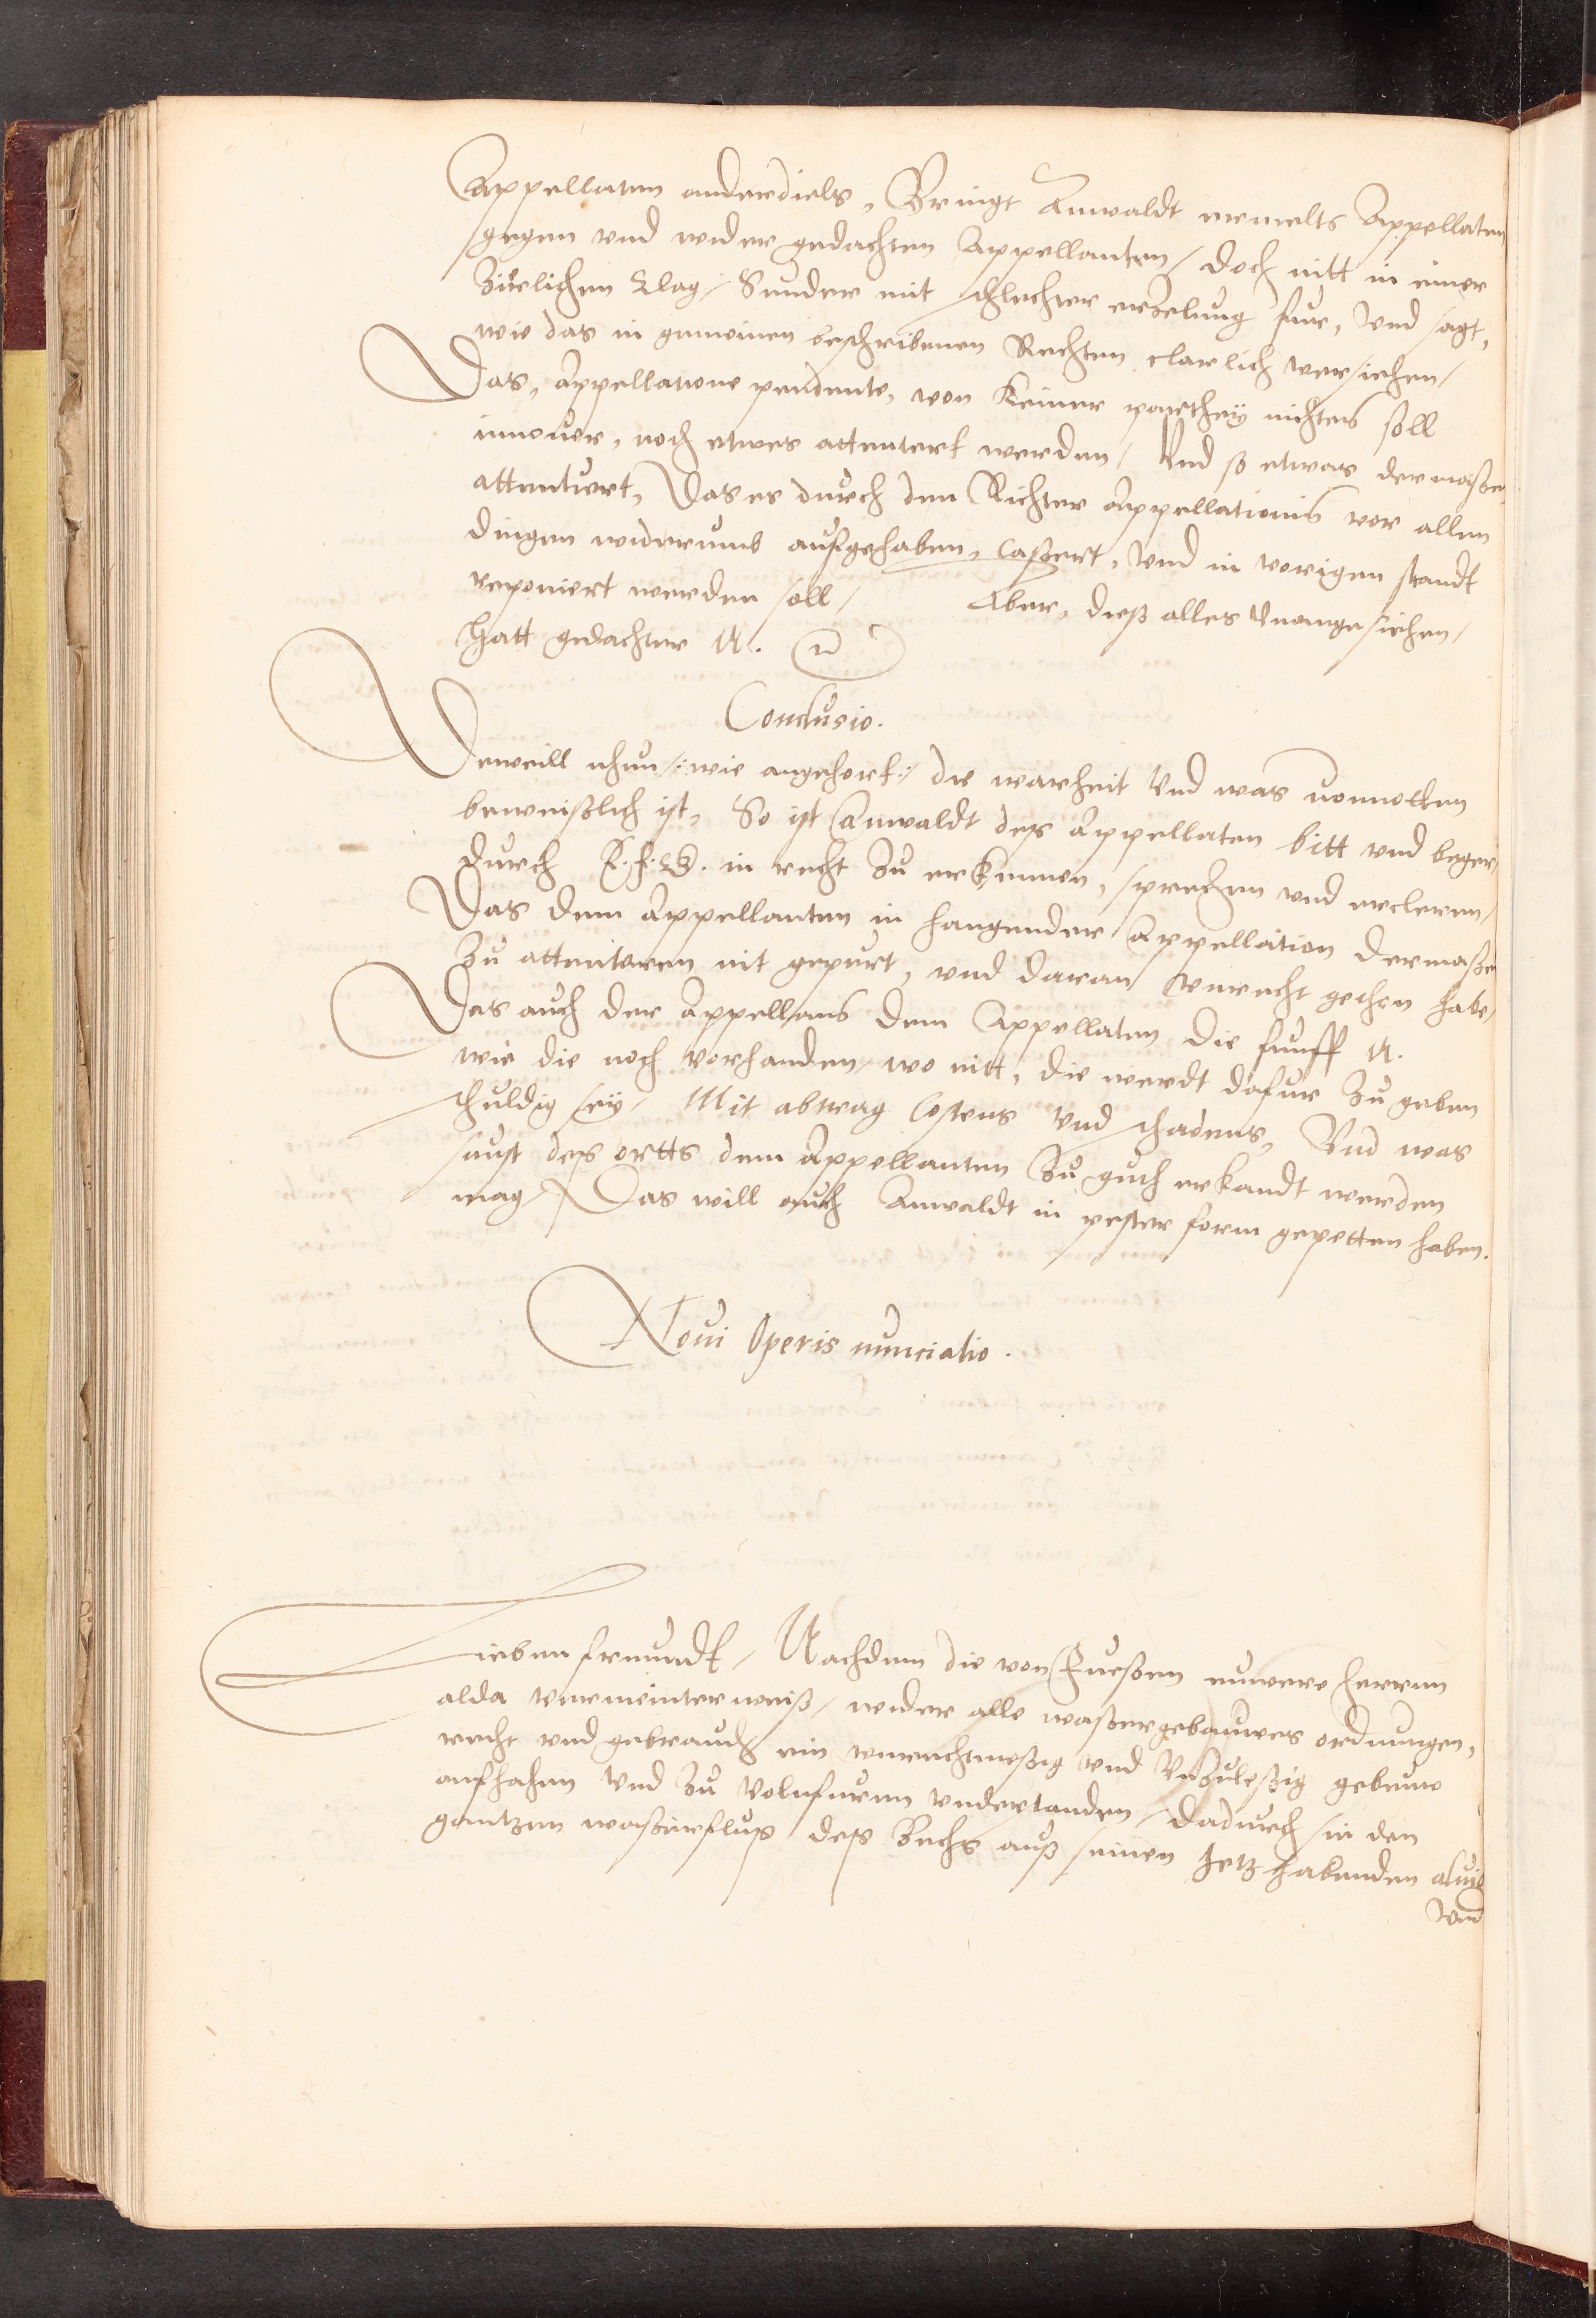 Appellaten anderdiels, Bringt Anwaldt ermelts Appellaten
gegen vnd wider gedachten Appellanten / doch nitt in einer
Zirlichen Clag / Sunder mit schlechter erzelung fure, vnd sagt,
wie das in gemeinen beschribenen Rechten clarlich versiehen /
Das, Appellatione pendente, von keiner parthey nichtes soll
innouer, noch etwes attentert werden / Vnd so etwas dermaßen
attentiert, Das es durch den Richter Appellationis vor allen
dingen widerumb aufgehaben, Caßiert, vnd in vorigen standt
reponiert werden soll / Aber, dieß alles vnangesiehen /
hatt gedachter N.
Conclusio.
Dieweill nhun /: wie angehort :/ die warheit vnd was vonnotten
beweißlich ist, So ist Anwaldt deß Appellaten bitt vnd beger
durch E. f. G. in recht zu erkennen, sprechen vnd ercleren /
Das dem Appellanten in hangender Appellation dermaßen
zu attentieren nit gepurt, vnd daran vnrecht gethon habe /
Das auch der Appellans dem Appellaten die funff N.
wie die noch vorhanden, wo nitt, die werdt dafur zu geben
schuldig sey / Mit abtrag Costens vnd schadens, Vnd was
sunst deß ortts dem Appellanten zu guth erkandt werden
mag / Das will auch Anwaldt in pester form gepetten haben.
Noui Operis nunciatio.
Lieben freundt / Nachdem die von Fueßen euwere herren
alda vermeinter weiß / wider alle waßergebauwes ordnungen,
recht vnd gebrauch ein vnrechtmeßig vnd vnzuleßig gebeuw
anfhahen vnd zu volnfueren vnderstanden / dadurch sie den
gantzen waßerfluß deß Lechs auß seinen Jetz habenden alueo
vnd